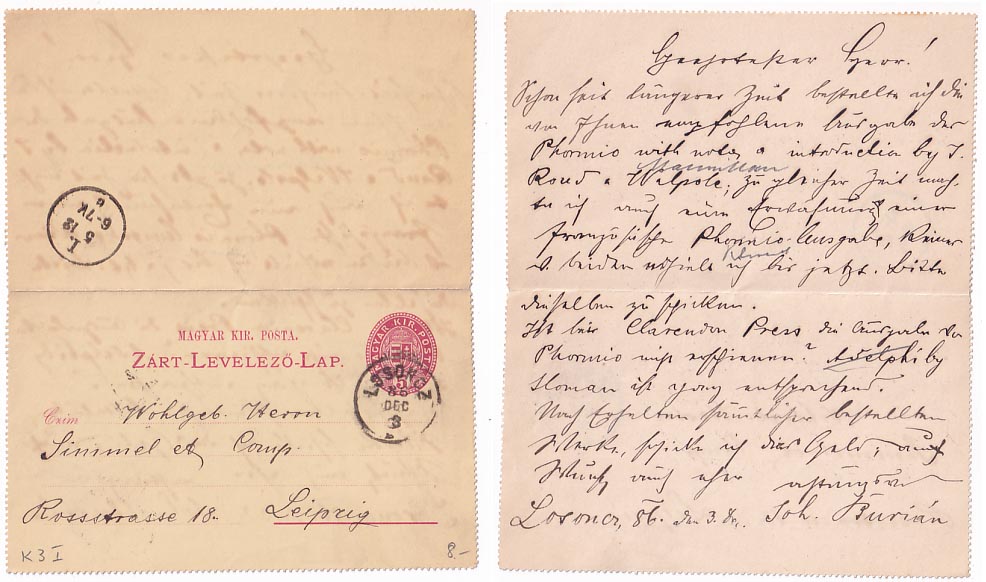 L.
5 12
6-7V
MAGYAR KIR. POSTA.
ZÁRT-LEVELEZŐ-LAP.
MAGYAR KIR. POSTA
5
LOSONCZ
86
DEC
3
Czim Wohlgeb. Herrn
Simmel et Comp.
Rossstrasse 18. Leipzig
K3I
8.-
Geehrtester Herr!
Schon seit längerer Zeit bestellte ich die
von Ihnen empfohlene Ausgabe des
Phormio with notes a introduction by J.
Macmillan
Bond a Walpole; zu gleicher Zeit mach-
te ich auch eine Erwähnung einer
französische Phormio-Ausgabe, keine
v. beiden erhielt ich bis jetzt. Bitte
dieselben zu schicken.
Ist bei Clarendon Press die Ausgabe von
Phormio nicht erschienen? Adelphi by
Sloman ist ganz entsprechend.
Nach Erhalten sämtlicher bestellten
Werke, schicke ich das Geld,
auch eher
Losoncz, 86. den 3. Joh. Burián